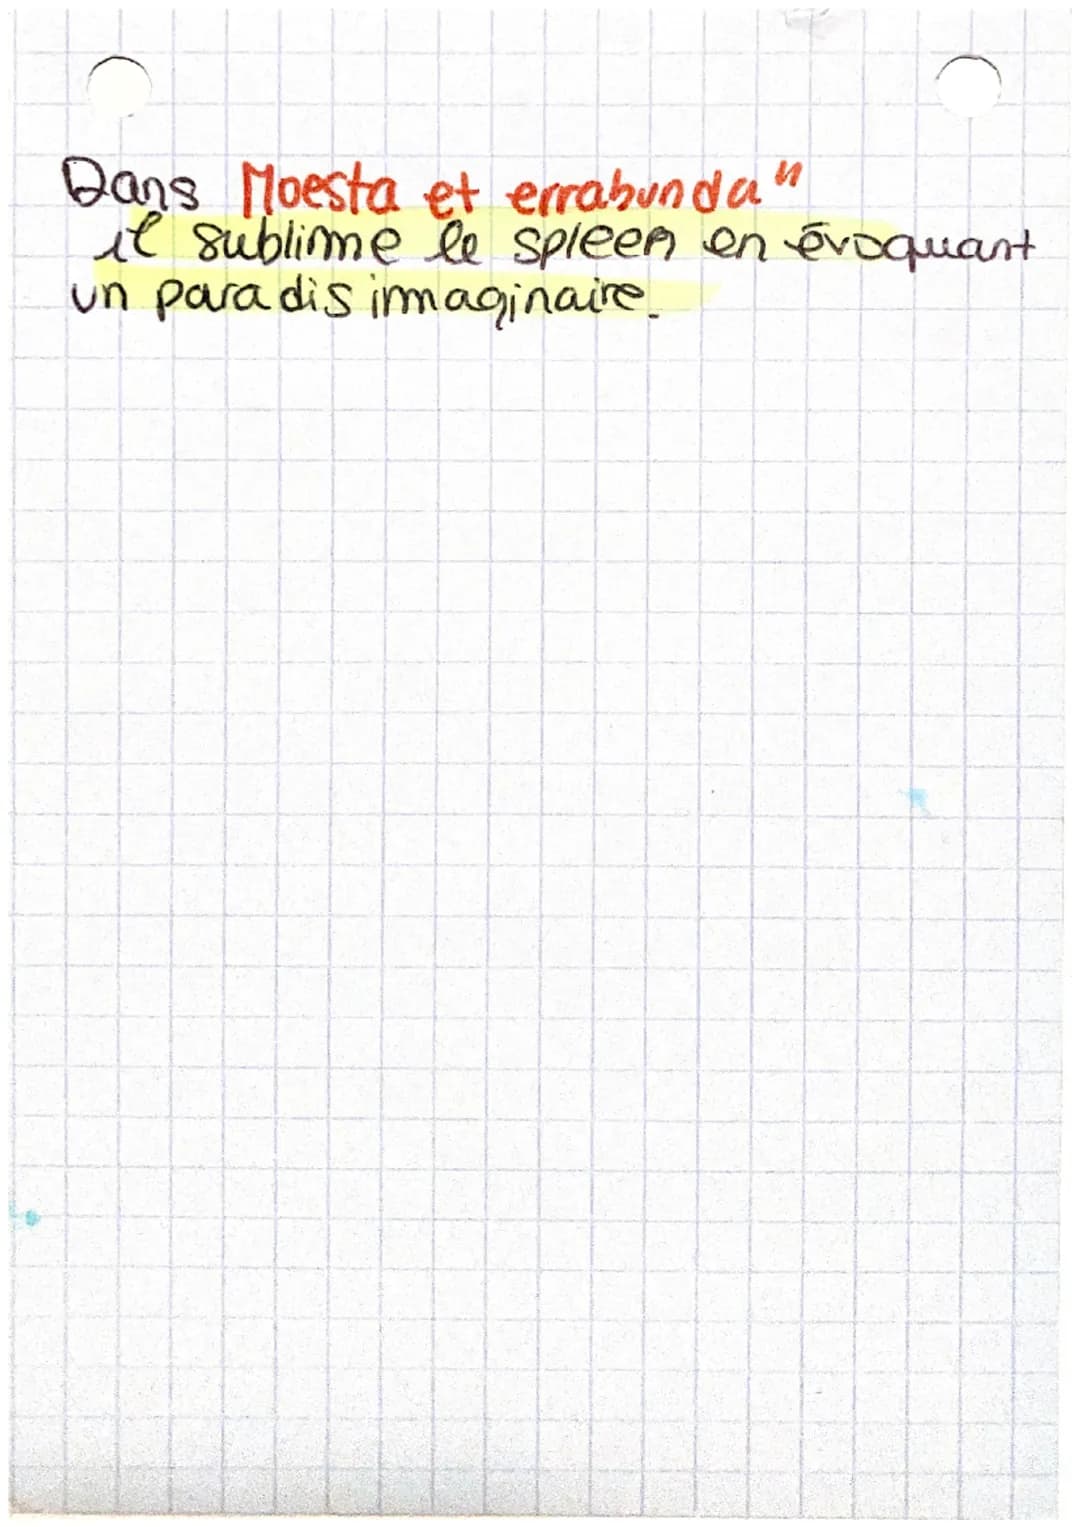 Dans Moesta et errabunda"
il sublime le spleen en évoquant
un paradis immaginaire.